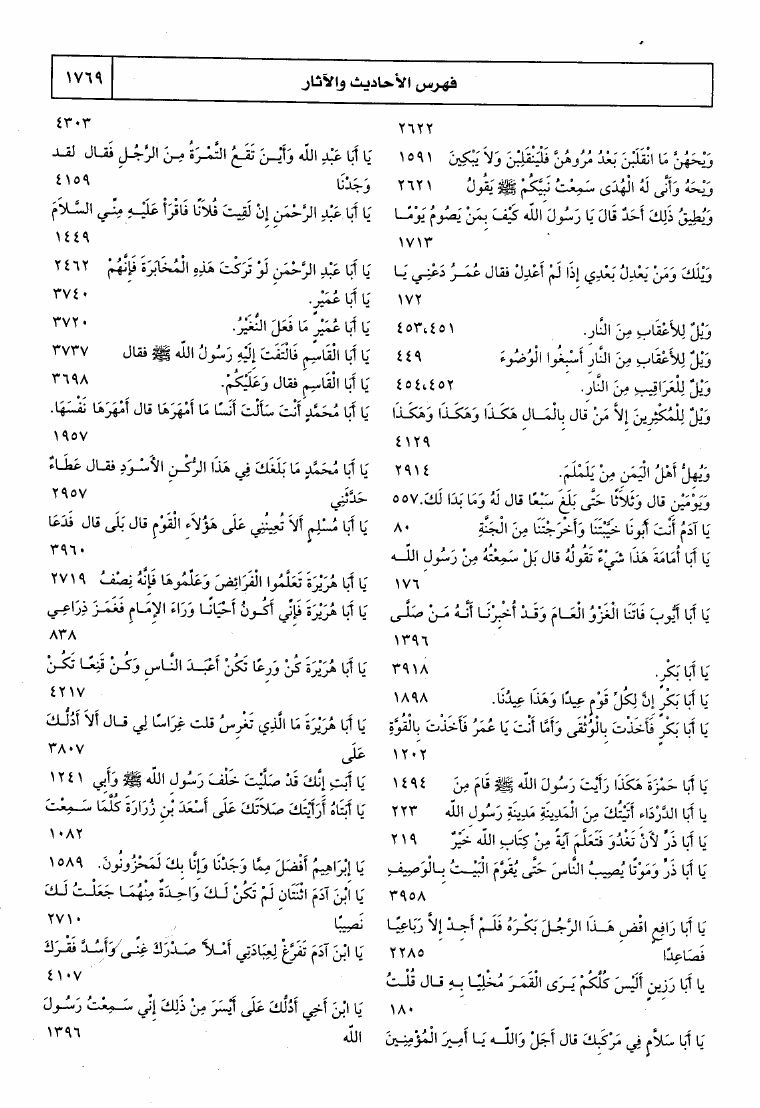 فهرس الأحاديث والآثار
١٧٦٩
٢٦٢٢
وَيْحَهُنَّ مَا انْقَلَبْنَ بَعْدُ مُرُوهُنَّ فَلْيَنْقَلِبْنَ وَلاَ يَبْكِينَ ١٥٩١
وَيْحَهُ وَأَنَّى لَهُ الْهُدَى سَمِعْتُ نَبِيَّكُمْ ﷺ يَقُولُ ٢٦٢١
وَيُطِيقُ ذَلِكَ أَحَدٌ قَالَ يَا رَسُولَ الله كَيْفَ بِمَنْ يَصُومُ يَوْمًا
١٧١٣
وَيْلَكَ وَمَنْ يَعْدِلُ بَعْدِي إِذَا لَمْ أَعْدِلْ فقال عُمَرُ دَعْنِي يَا
١٧٢
وَيْلٌ لِلأَعْقَابِ مِنَ النَّارِ. ٤٥٣،٤٥١
وَيْلٌ لِلأَعْقَابِ مِنَ النَّارِ أَسْبِغُوا الْوُضُوءَ ٤٤٩
وَيْلٌ لِلْعَرَاقِيبِ مِنَ النَّارِ. ٤٥٤،٤٥٢
وَيْلٌ لِلْمُكْثِرِينَ إِلاَّ مَنْ قال بِالْمَالِ هَكَذَا وَهَكَذَا وَهَكَذَا
٤١٢٩
وَيُهِلُّ أَهْلُ الْيَمَنِ مِنْ يَلَمْلَمَ. ٢٩١٤
وَيَوْمَيْنِ قال وَثَلاَثًا حَتَّى بَلَغَ سَبْعًا قال لَهُ وَمَا بَدَا لَكَ. ٥٥٧
يَا آدَمُ أَنْتَ أَبُونَا خَيَّبْتَنَا وَأَخْرَجْتَنَا مِنَ الْجَنَّةِ ٨٠
يَا أَبَا أُمَامَةَ هَذَا شَيْءٌ تَقُولُهُ قال بَلْ سَمِعْتُهُ مِنْ رَسُولِ الله
١٧٦
يَا أَبَا أَيُّوبَ فَاتَنَا الْغَزْوُ الْعَامَ وَقَدْ أُخْبِرْنَا أَنَّهُ مَنْ صَلَّى
١٣٩٦
يَا أَبَا بَكْرٍ. ٣٩١٨
يَا أَبَا بَكْرٍ إِنَّ لِكُلِّ قَوْمٍ عِيدًا وَهَذَا عِيدُنَا. ١٨٩٨
يَا أَبَا بَكْرٍ فَأَخَذْتَ بِالْوُثْقَى وَأَمَّا أَنْتَ يَا عُمَرُ فَأَخَذْتَ بِالْقُوَّةِ
١٢٠٢
يَا أَبَا حَمْزَةَ هَكَذَا رَأَيْتَ رَسُولَ الله ﷺ قَامَ مِنَ ١٤٩٤
يا أَبَا الدَّرْدَاءِ أَتَيْتُكَ مِنَ الْمَدِينَةِ مَدِينَةِ رَسُولِ الله ٢٢٣
يَا أَبَا ذَرٍّ لأَنْ تَغْدُوَ فَتَعَلَّمَ آيَةً مِنْ كِتَابِ الله خَيْرٌ ٢١٩
يَا أَبَا ذَرٍّ وَمَوْتًا يُصِيبُ النَّاسَ حَتَّى يُقَوَّمَ الْبَيْتُ بِالْوَصِيفِ
٣٩٥٨
يَا أَبَا رَافِعٍ اقْضِ هَذَا الرَّجُلَ بَكْرَهُ فَلَمْ أَجِدْ إِلاَّ رَبَاعِيًا
فَصَاعِدًا ٢٢٨٥
يا أَبَا رَزِينٍ أَلَيْسَ كُلُّكُمْ يَرَى الْقَمَرَ مُخْلِيًا بِهِ قال قُلْتُ
١٨٠
يَا أَبَا سَلاَّمٍ فِي مَرْكَبِكَ قال أَجَلْ وَالله يَا أَمِيرَ الْمُؤْمِنِينَ
٤٣٠٣
يَا أَبَا عَبْدِ الله وَأَيْنَ تَقَعُ التَّمْرَةُ مِنَ الرَّجُلِ فَقال لقد
وَجَدْنَا ٤١٥٩
يَا أَبَا عَبْدِ الرَّحْمَنِ إِنْ لَقِيتَ فُلاَنًا فَاقْرَأْ عَلَيْهِ مِنِّي السَّلاَمَ
١٤٤٩
يَا أَبَا عَبْدِ الرَّحْمَنِ لَوْ تَرَكْتَ هَذِهِ الْمُخَابَرَةَ فَإِنَّهُمْ ٢٤٦٢
يَا أَبَا عُمَيْرٍ. ٣٧٤٠
يَا أَبَا عُمَيْرٍ مَا فَعَلَ النُّغَيْرُ. ٣٧٢٠
يَا أَبَا الْقَاسِمِ فَالْتَفَتَ إِلَيْهِ رَسُولُ الله ﷺ فقال ٣٧٣٧
يَا أَبَا الْقَاسِمِ فقال وَعَلَيْكُمْ. ٣٦٩٨
يَا أَبَا مُحَمَّدٍ أَنْتَ سَأَلْتَ أَنَسًا مَا أَمْهَرَهَا قال أَمْهَرَهَا نَفْسَهَا.
١٩٥٧
يَا أَبَا مُحَمَّدٍ مَا بَلَغَكَ فِي هَذَا الرُّكْنِ الأَسْوَدِ فقال عَطَاءٌ
حَدَّثَنِي ٢٩٥٧
يَا أَبَا مُسْلِمٍ أَلاَ تُعِينُنِي عَلَى هَؤُلاَءِ الْقَوْمِ قال بَلَى قال فَدَعَا
٣٩٦٠
يَا أَبَا هُرَيْرَةَ تَعَلَّمُوا الْفَرَائِضَ وَعَلِّمُوهَا فَإِنَّهُ نِصْفُ ٢٧١٩
يَا أَبَا هُرَيْرَةَ فَإِنِّي أَكُونُ أَحْيَانًا وَرَاءَ الإِمَامِ فَغَمَزَ ذِرَاعِي
٨٣٨
يَا أَبَا هُرَيْرَةَ كُنْ وَرِعًا تَكُنْ أَعْبَدَ النَّاسِ وَكُنْ قَنِعًا تَكُنْ
٤٢١٧
يَا أَبَا هُرَيْرَةَ مَا الَّذِي تَغْرِسُ قلت غِرَاسًا لِي قال أَلاَ أَدُلُّكَ
عَلَى ٣٨٠٧
يَا أَبَتِ إِنَّكَ قَدْ صَلَّيْتَ خَلْفَ رَسُولِ الله ﷺ وَأَبِي ١٢٤١
يَا أَبَتَاهُ أَرَأَيْتَكَ صَلاَتَكَ عَلَى أَسْعَدَ بْنِ زُرَارَةَ كُلَّمَا سَمِعْتَ
١٠٨٢
يَا إِبْرَاهِيمُ أَفْضَلَ مِمَّا وَجَدْنَا وَإِنَّا بِكَ لَمَحْزُونُونَ. ١٥٨٩
يَا ابْنَ آدَمَ اثْنَتَانِ لَمْ تَكُنْ لَكَ وَاحِدَةٌ مِنْهُمَا جَعَلْتُ لَكَ
نَصِيبًا ٢٧١٠
يَا ابْنَ آدَمَ تَفَرَّغْ لِعِبَادَتِي أَمْلأْ صَدْرَكَ غِنًى وَأَسُدَّ فَقْرَكَ
٤١٠٧
يَا ابْنَ أَخِي أَدُلُّكَ عَلَى أَيْسَرَ مِنْ ذَلِكَ إِنِّي سَمِعْتُ رَسُولَ
الله ١٣٩٦